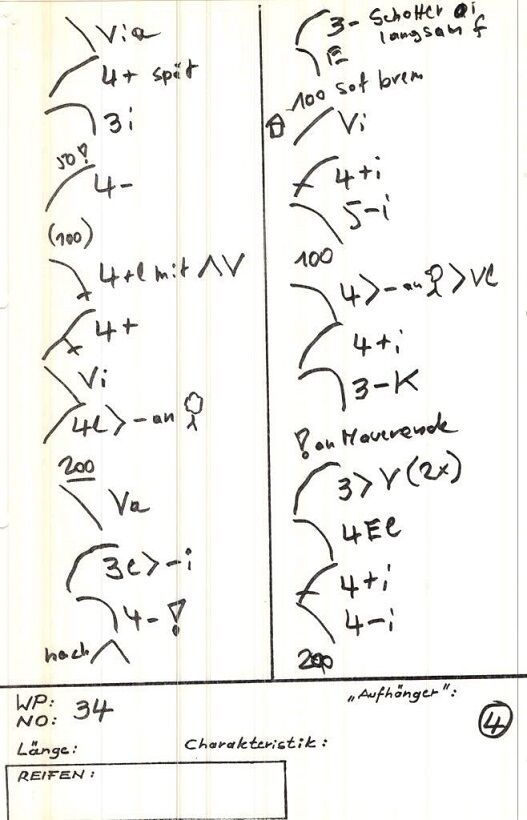 Via
4+ spät
3i
50!
4-
(100)
4+l mit ΛV
4+
Vi
4l>-an
200
Va
3l>-i
4-!
nach Λ
3- Schotter i
langsam f
100 sof brem
Vi
4+i
5-i
100
4>-an >Vl
4+i
3-K
! an Mauerende
3>V(2x)
4El
4+i
4-i
200
WP: 34
NO:
„Aufhänger":
4
Länge:
Charakteristik:
REIFEN: